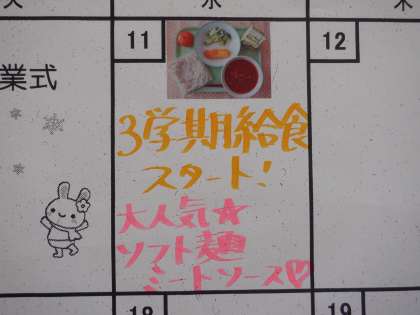 水
木
11
12
業式
3学期給食
スタート!
大人気☆
ソフト麺
ミートソース♡
18
19